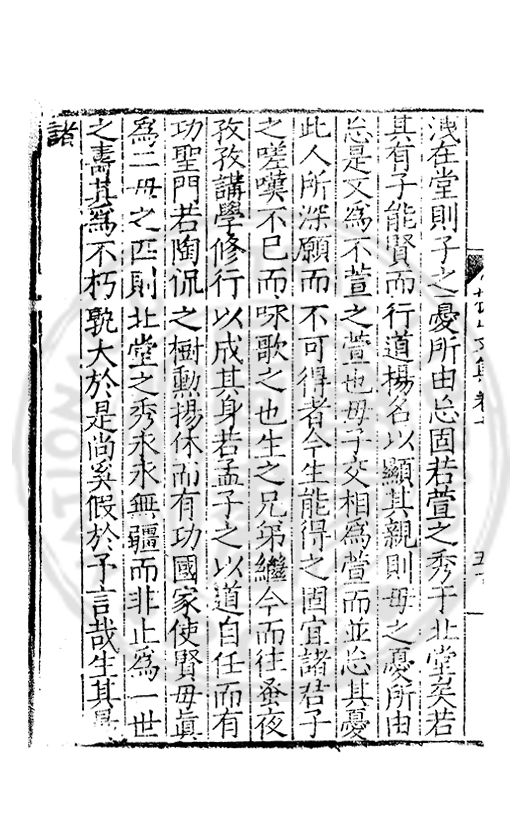 洩在堂則子之憂所由忘固若萱之秀于北堂矣若
其有子能賢而行道楊名以顯其親則母之憂所由
忘是又為不萱之萱也母子交相為萱而並忘其憂
此人所深願而不可得者今生能得之固宜諸君子
之嗟嘆不已而咏歌之也生之兄弟繼今而往蚤夜
孜孜講學修行以成其身若孟子之以道自任而有
功聖門若陶侃之樹勲揚休而有功國家使賢母真
為二母之匹則北堂之秀永永無疆而非止為一世
之壽其為不朽孰大於是尚奚假於予言哉生其
諸
文集卷